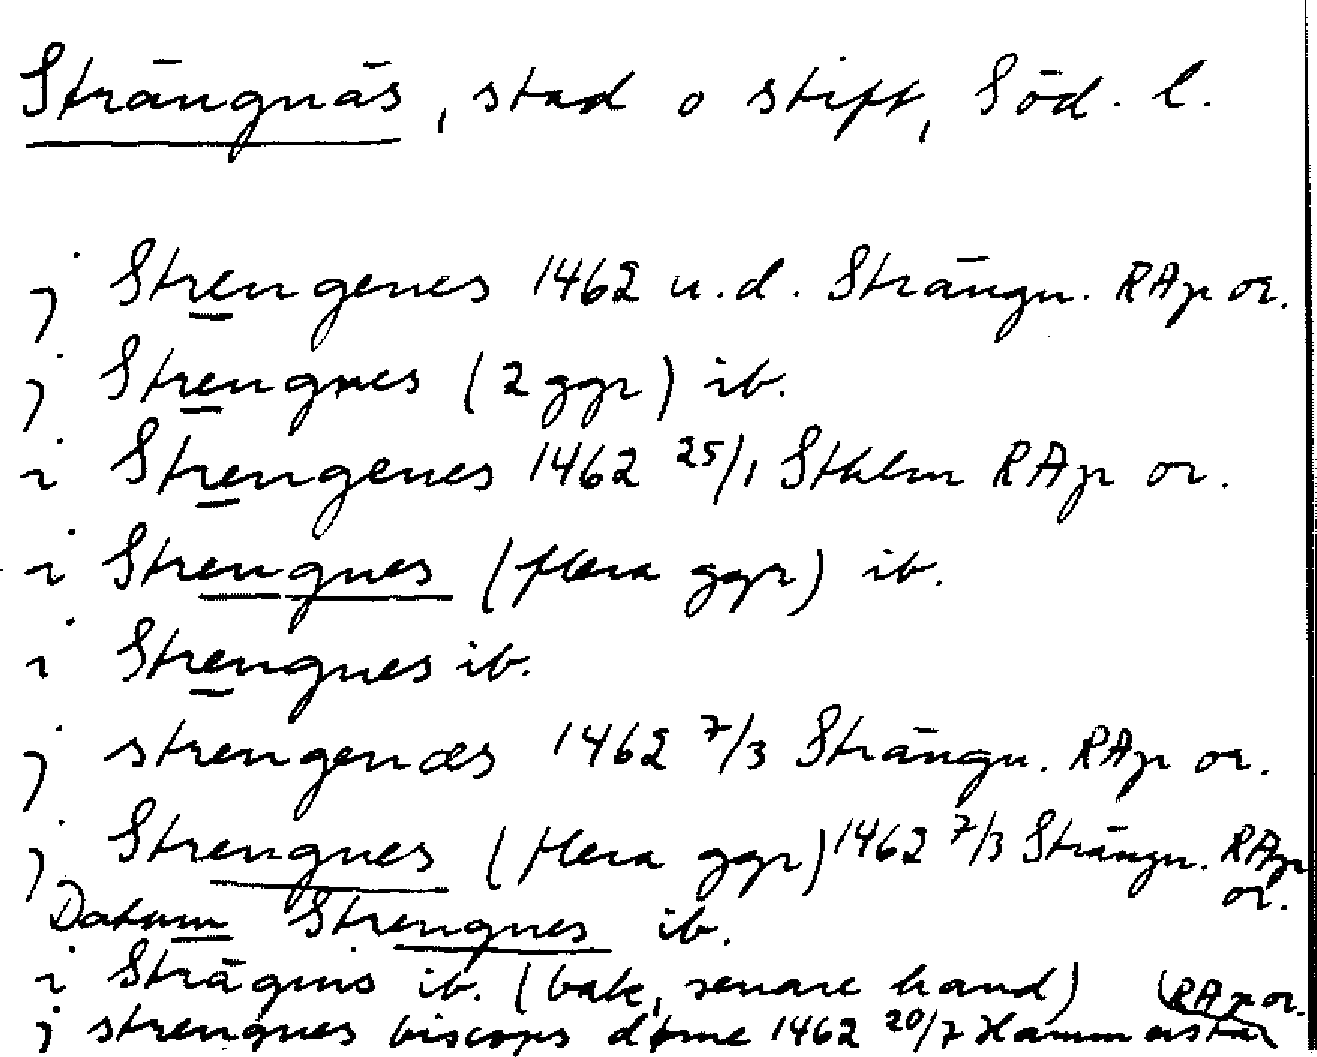 Strängnäs, stad o stift, Söd. l.
j Strengenes 1462 u.d. Strängn. RAp or.
j Strengnes (2 ggr) ib.
i Strengenes 1462 25/1 Sthlm RAp or.
i Strengnes (flera ggr) ib.
i Strengnes ib.
j strengenæs 1462 7/3 Strängn. RAp or.
j Strengnes (flera ggr) 1462 7/3 Strängn. RAp or.
Datum Strengnes ib.
i Strāgnis ib. (bak, senare hand) (RAp or.
j strengnes biscops døme 1462 20/7 Hammersta